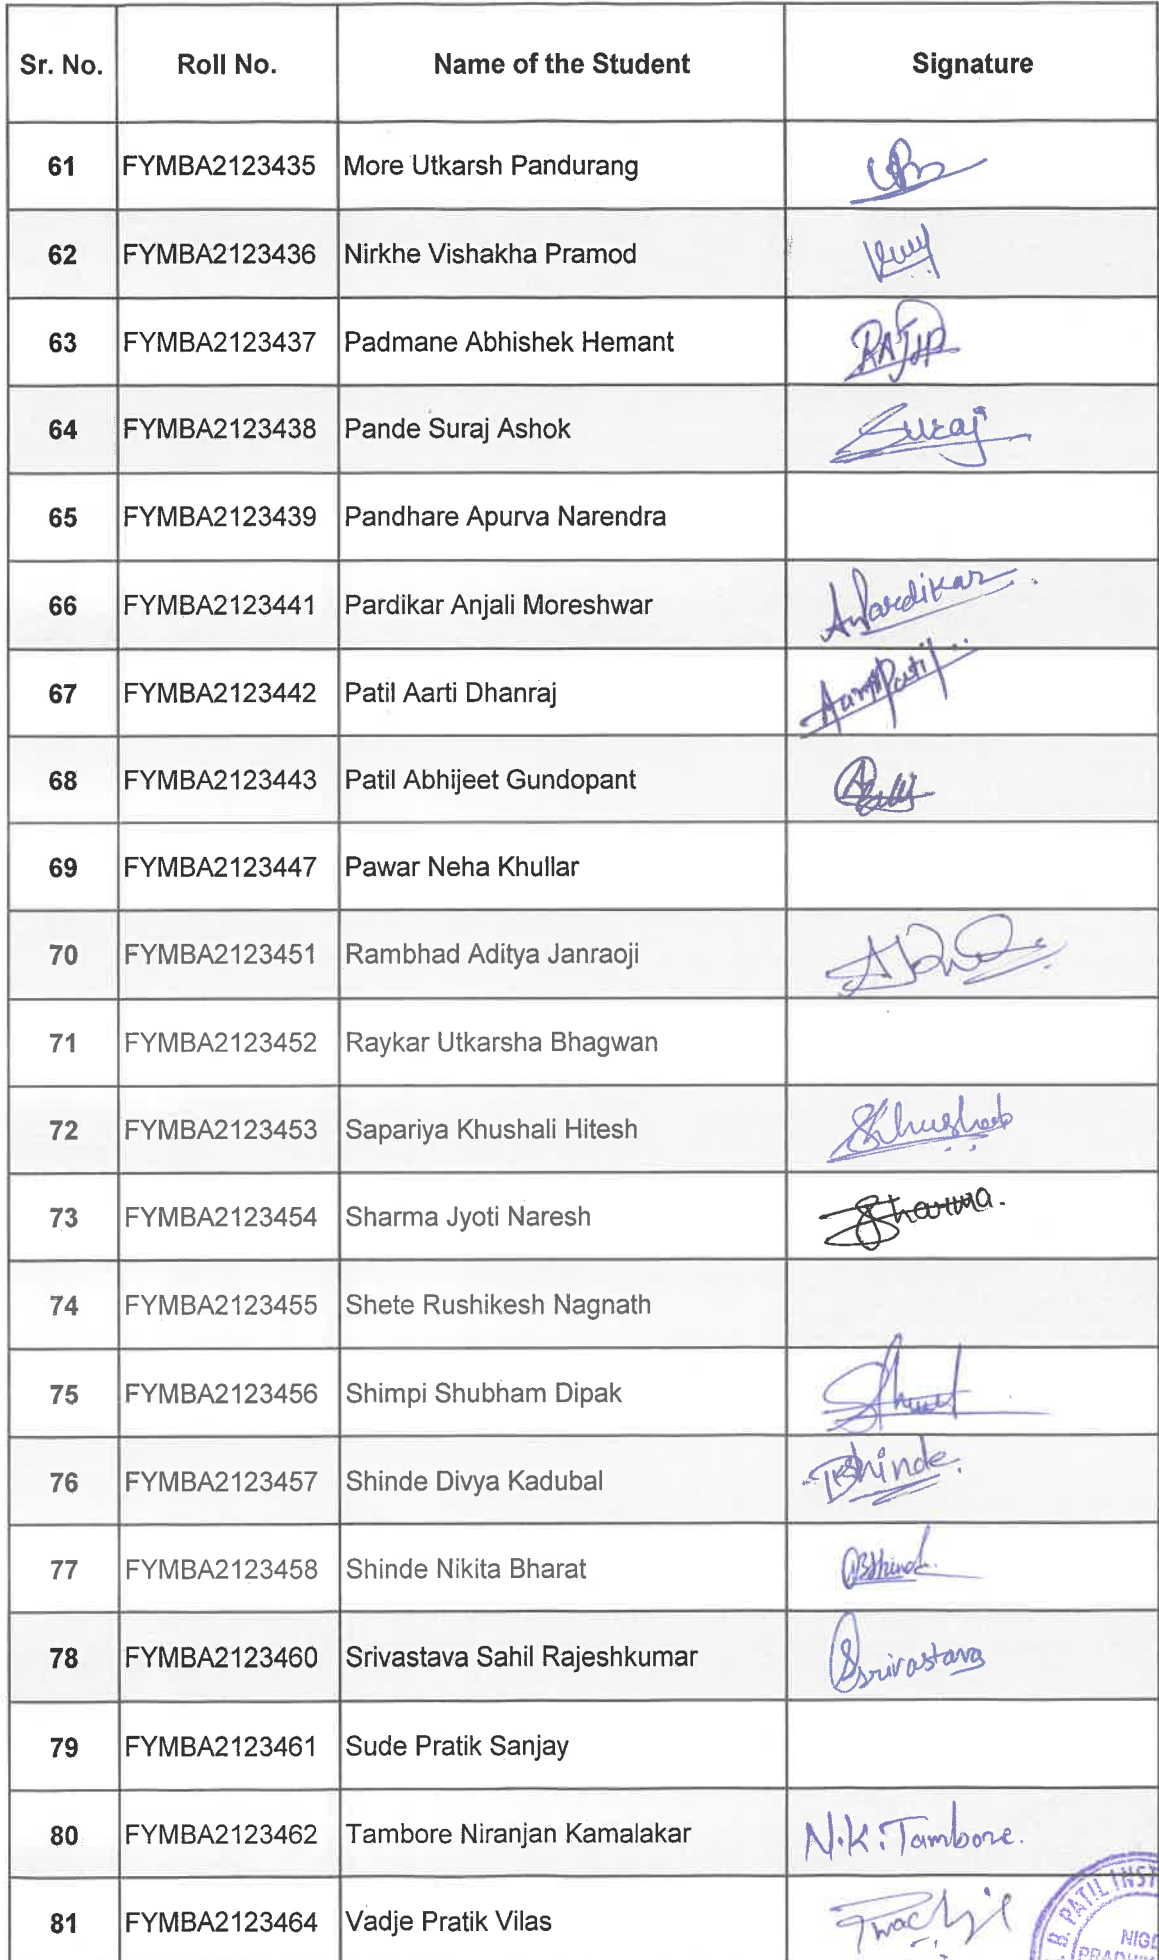 Sr. No. Roll No. Name of the Student Signature
61 FYMBA2123435 More Utkarsh Pandurang
62 FYMBA2123436 Nirkhe Vishakha Pramod
63 FYMBA2123437 Padmane Abhishek Hemant
64 FYMBA2123438 Pande Suraj Ashok Suraj
65 FYMBA2123439 Pandhare Apurva Narendra
66 FYMBA2123441 Pardikar Anjali Moreshwar
67 FYMBA2123442 Patil Aarti Dhanraj
68 FYMBA2123443 Patil Abhijeet Gundopant
69 FYMBA2123447 Pawar Neha Khullar
70 FYMBA2123451 Rambhad Aditya Janraoji
71 FYMBA2123452 Raykar Utkarsha Bhagwan
72 FYMBA2123453 Sapariya Khushali Hitesh
73 FYMBA2123454 Sharma Jyoti Naresh
74 FYMBA2123455 Shete Rushikesh Nagnath
75 FYMBA2123456 Shimpi Shubham Dipak
76 FYMBA2123457 Shinde Divya Kadubal
77 FYMBA2123458 Shinde Nikita Bharat
78 FYMBA2123460 Srivastava Sahil Rajeshkumar
79 FYMBA2123461 Sude Pratik Sanjay
80 FYMBA2123462 Tambore Niranjan Kamalakar N.K.Tambore.
81 FYMBA2123464 Vadje Pratik Vilas
B. PATIL INST
NIG